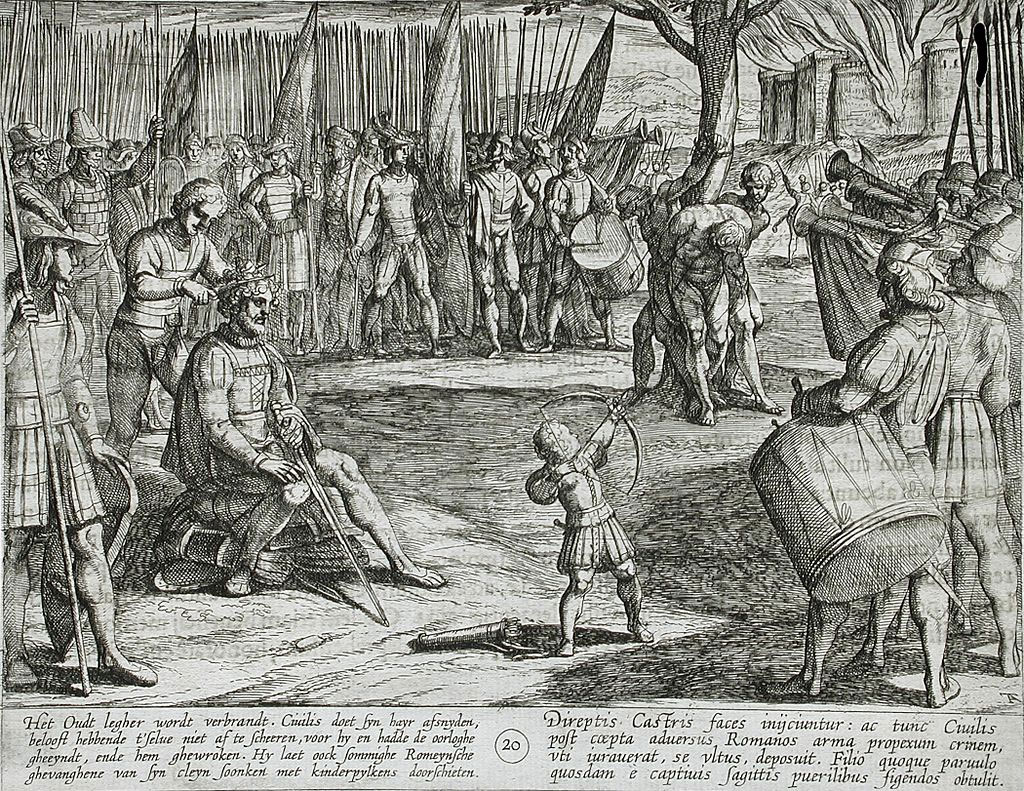 Het Oudt legher wordt verbrandt. Ciuilis doet syn hayr afsnyden,
belooft hebbende t'selue niet af te scheeren, voor hy en hadde de oorloghe
gheeyndt, ende hem ghewroken. Hy laet oock sommighe Romeynsche
ghevanghene van syn cleyn soonken met kinderpylkens doorschieten.
20
Direptis Castris faces inijciuntur: ac tunc Ciuilis
post cœpta aduersus Romanos arma propexum crinem,
vti iurauerat, se vltus, deposuit. Filio quoque paruulo
quosdam è captiuis sagittis puerilibus figendos obtulit.